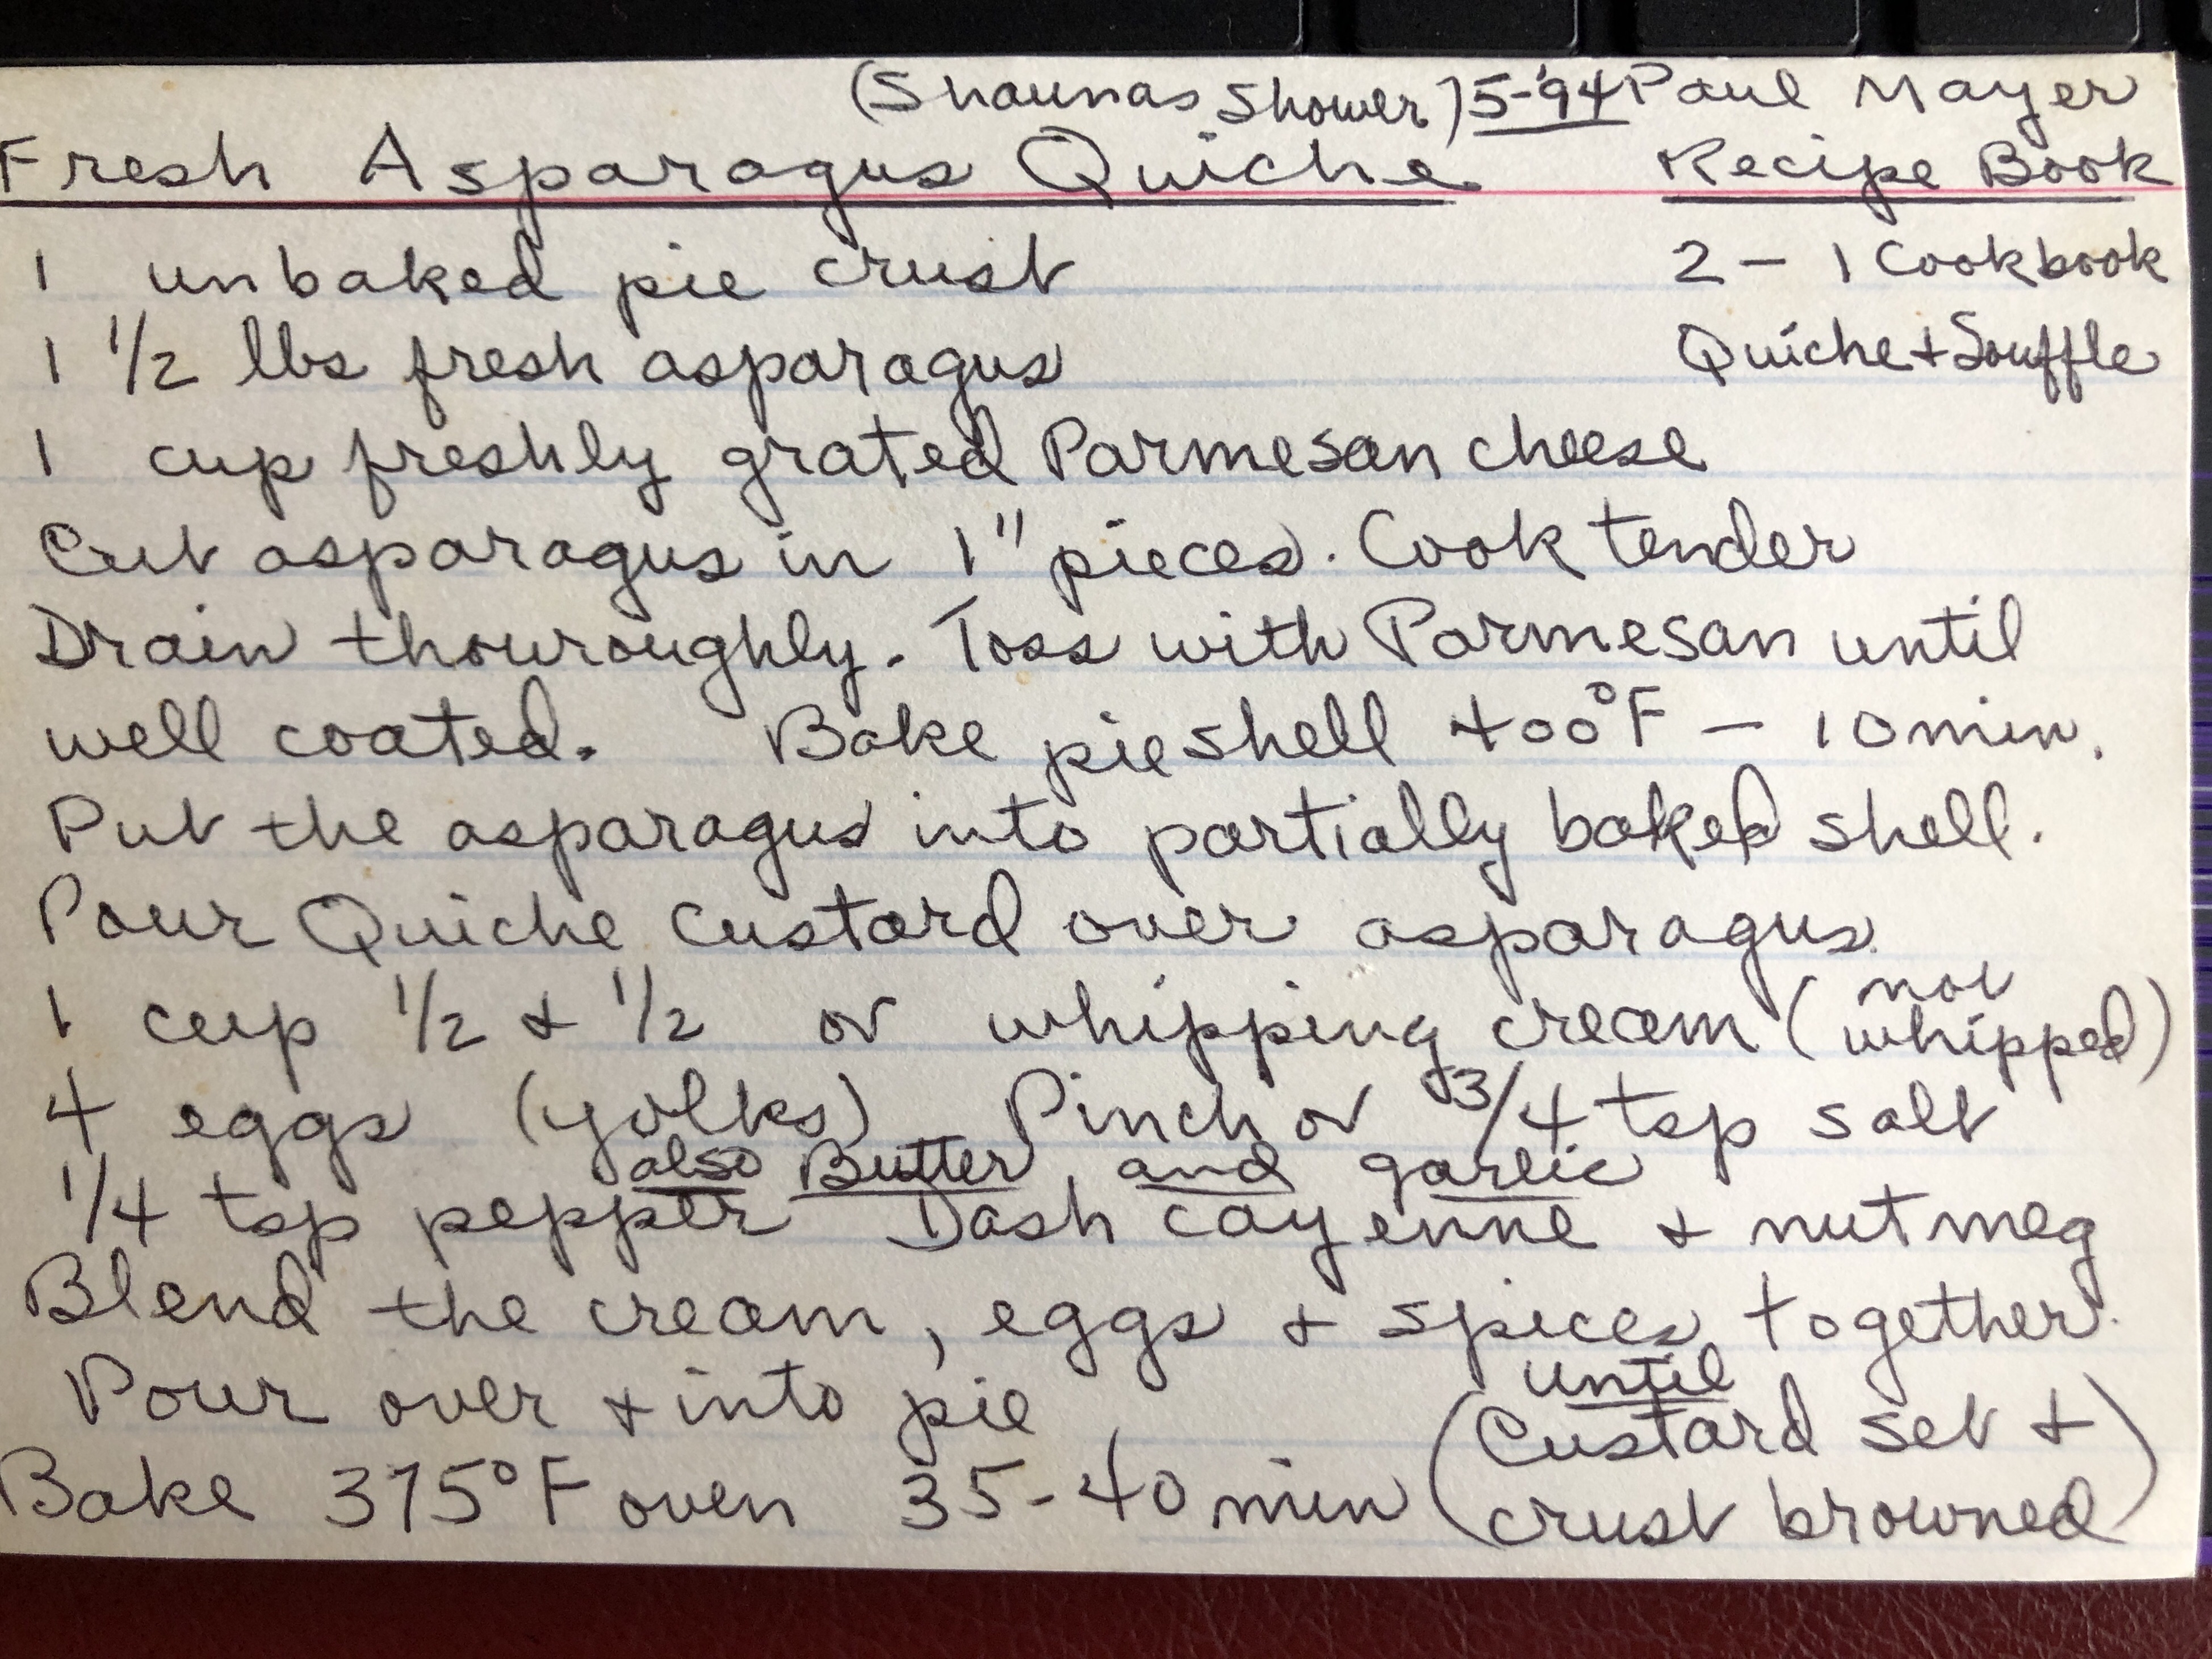 (Shaunas Shower) 5-'94 Paul Mayer
Fresh Asparagus Quiche Recipe Book
1 unbaked pie crust 2 - 1 Cookbook
1 1/2 lbs fresh asparagus Quiche + Souffle
1 cup freshly grated Parmesan cheese
Cut asparagus in 1" pieces. Cook tender
Drain thouroughly. Toss with Parmesan until
well coated. Bake pie shell 400°F - 10 min.
Put the asparagus into partially baked shell.
Pour Quiche Custard over asparagus.
1 cup 1/2 & 1/2 or whipping cream (not whipped)
4 eggs (yolks) Pinch or 3/4 tsp salt
also Butter and garlic
1/4 tsp pepper Dash cayenne & nutmeg
Blend the cream, eggs & spices together.
Pour over & into pie
Bake 375°F oven 35-40 min (until Custard set & crust browned)